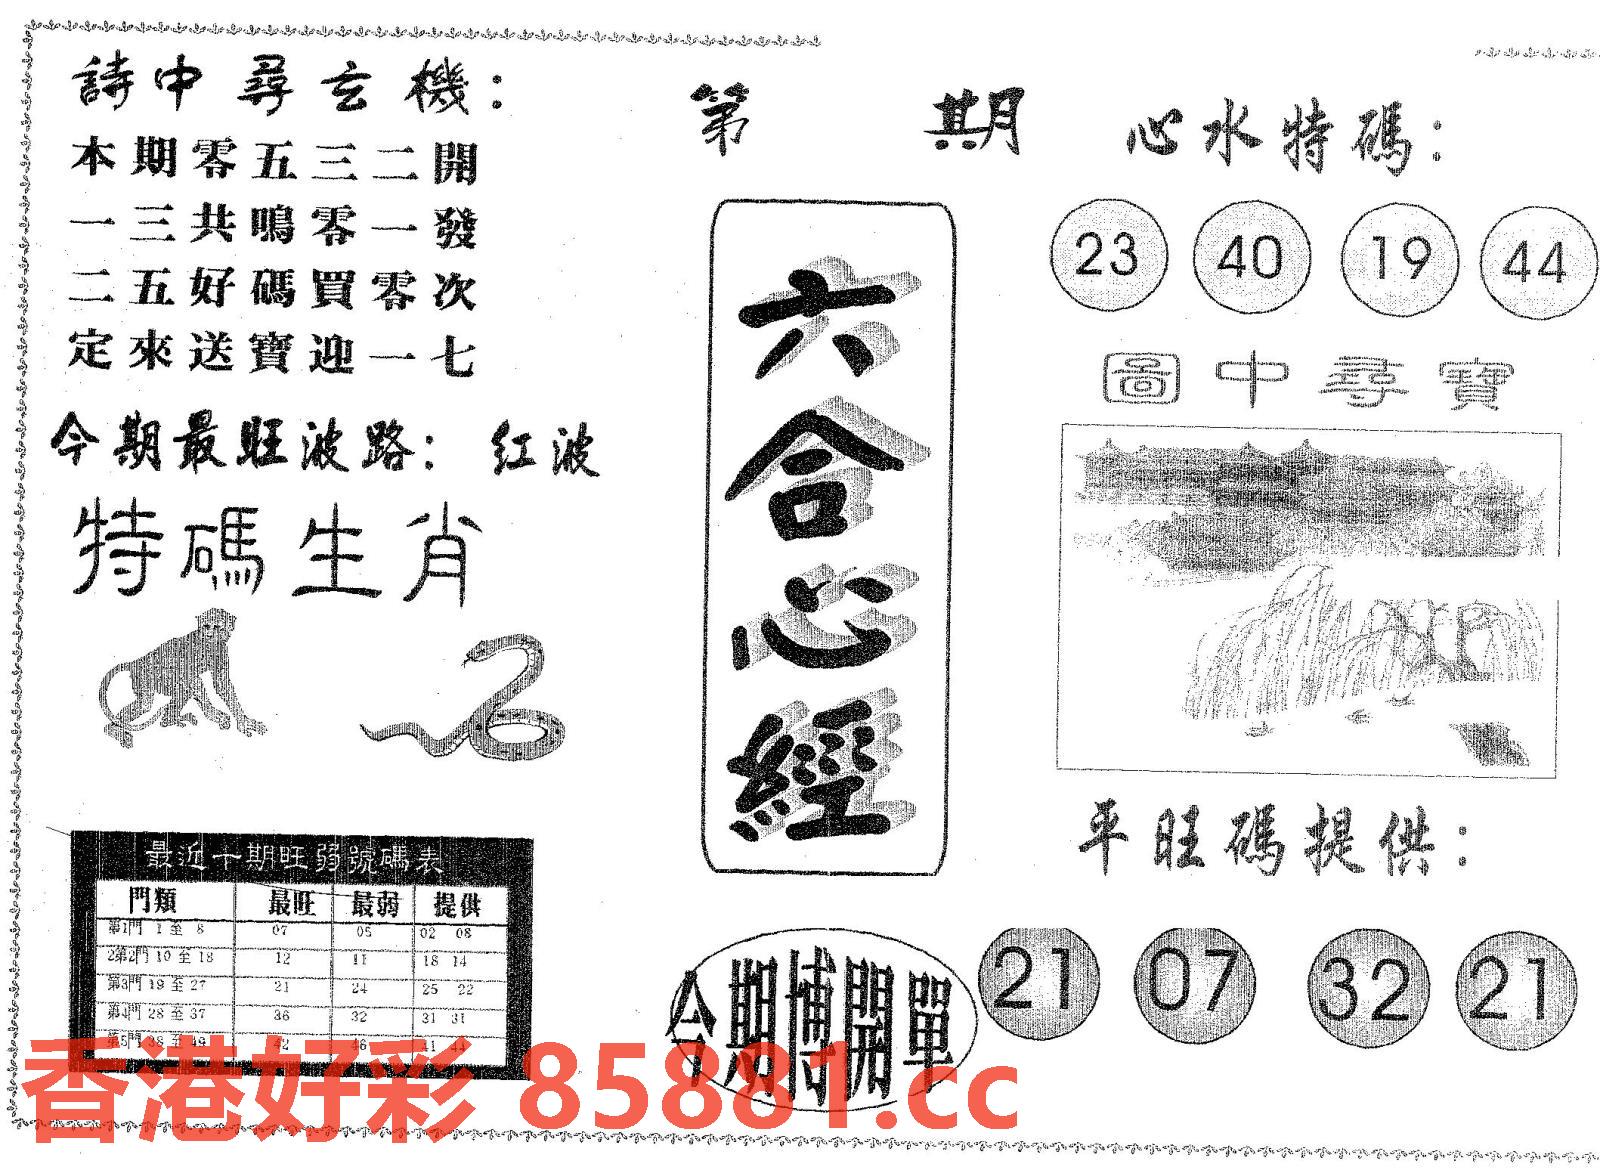 詩中尋玄機：
本期零五三二開
一三共鳴零一發
二五好碼買零次
定來送寶迎一七
今期最旺波路： 红波
特碼生肖
最近十期旺弱號碼表
門類 最旺 最弱 提供
第1門 1 至 8 07 05 02 08
2第2門 10 至 18 12 11 18 14
第3門 19 至 27 21 24 25 22
第4門 28 至 37 36 32 31 31
第5門 38 至 49 42 46 41 44
第 期
六合心經
今期博開單
心水特碼：
23 40 19 44
圖中尋寶
平旺碼提供：
21 07 32 21
香港好彩 85881.cc